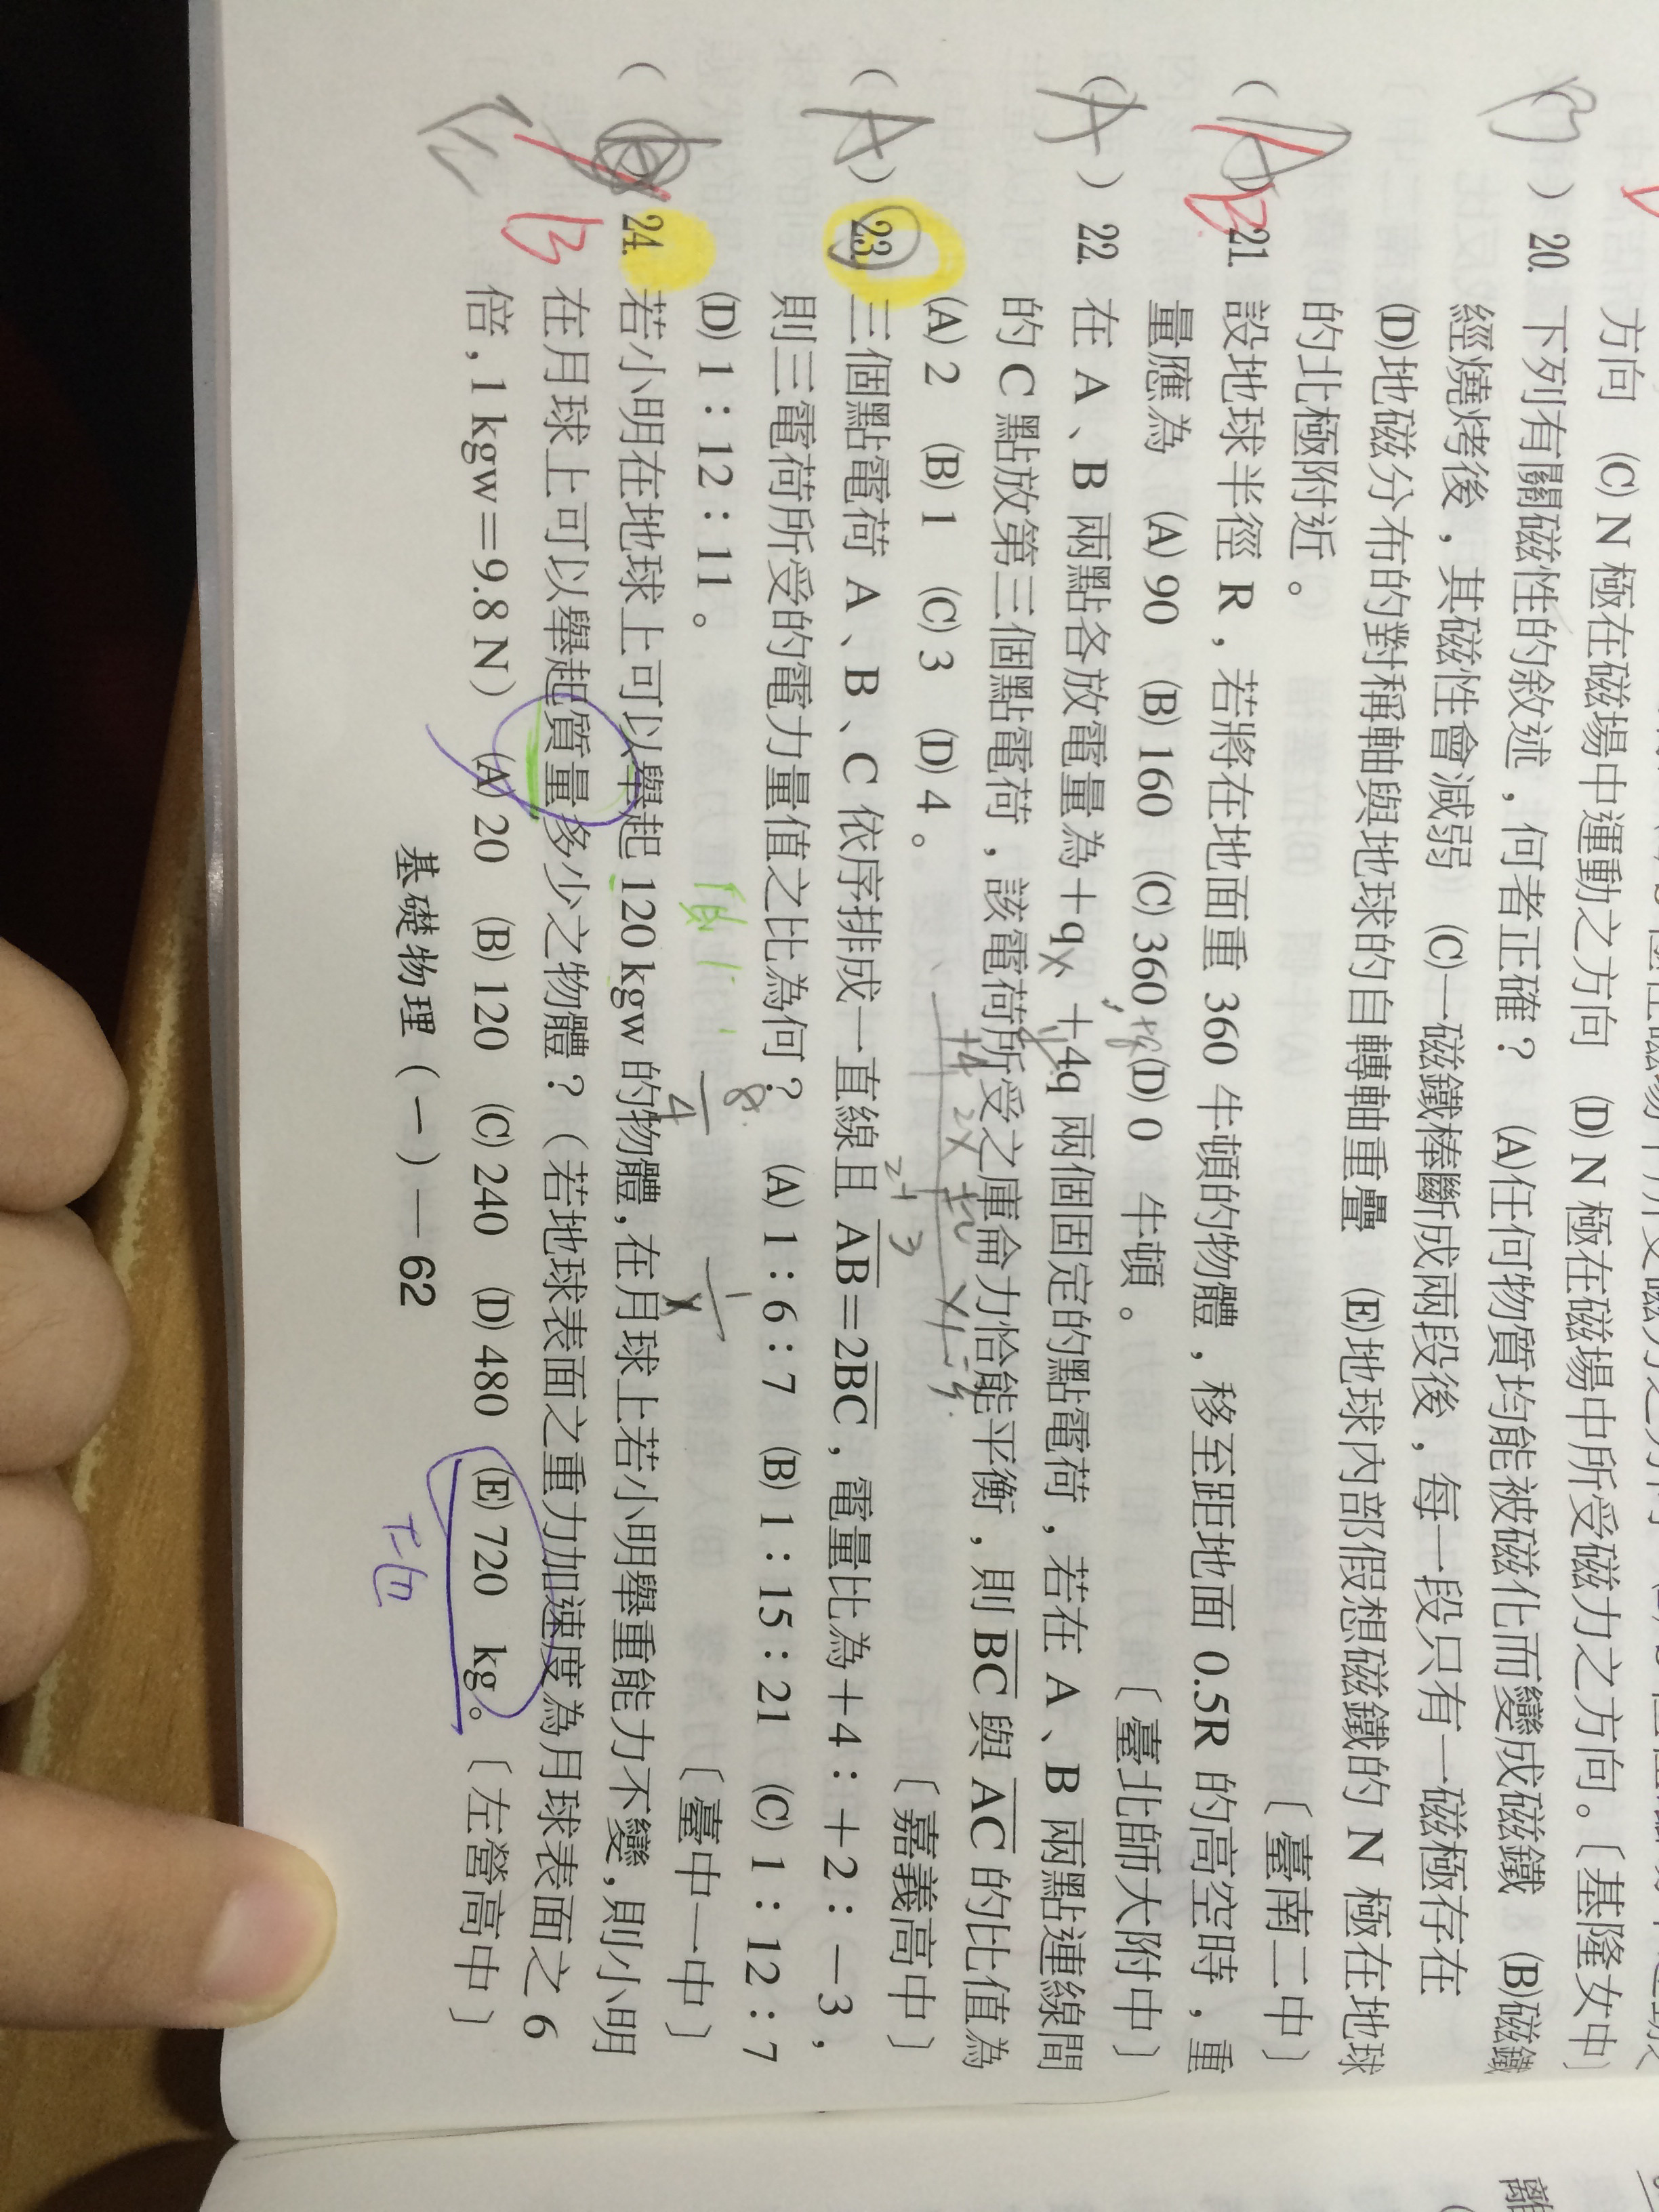 方向 (C) N 極在磁場中運動之方向 (D) N 極在磁場中所受磁力之方向。〔基隆女中〕
( B ) 20. 下列有關磁性的敘述,何者正確? (A)任何物質均能被磁化而變成磁鐵 (B)磁鐵
經燒烤後,其磁性會減弱 (C)一磁鐵棒斷成兩段後,每一段只有一磁極存在
(D)地磁分布的對稱軸與地球的自轉軸重疊 (E)地球內部假想磁鐵的 N 極在地球
的北極附近。 〔臺南二中〕
( A ) B 21. 設地球半徑 R,若將在地面重 360 牛頓的物體,移至距地面 0.5R 的高空時,重
量應為 (A) 90 (B) 160 (C) 360 (D) 0 牛頓。 〔臺北師大附中〕
( A ) 22. 在 A、B 兩點各放電量為+q、+4q 兩個固定的點電荷,若在 A、B 兩點連線間
的 C 點放第三個點電荷,該電荷所受之庫侖力恰能平衡,則 BC 與 AC 的比值為
(A) 2 (B) 1 (C) 3 (D) 4。 〔嘉義高中〕
+4 2x +2 x -3
( A ) 23. 三個點電荷 A、B、C 依序排成一直線且 AB=2BC,電量比為+4:+2:-3,
則三電荷所受的電力量值之比為何? (A) 1:6:7 (B) 1:15:21 (C) 1:12:7
(D) 1:12:11。 〔臺中一中〕
( ) 24. 若小明在地球上可以舉起 120 kgw 的物體,在月球上若小明舉重能力不變,則小明
B 在月球上可以舉起質量多少之物體?(若地球表面之重力加速度為月球表面之 6
倍,1 kgw=9.8 N) (A) 20 (B) 120 (C) 240 (D) 480 (E) 720 kg。 〔左營高中〕
基礎物理(一)—62